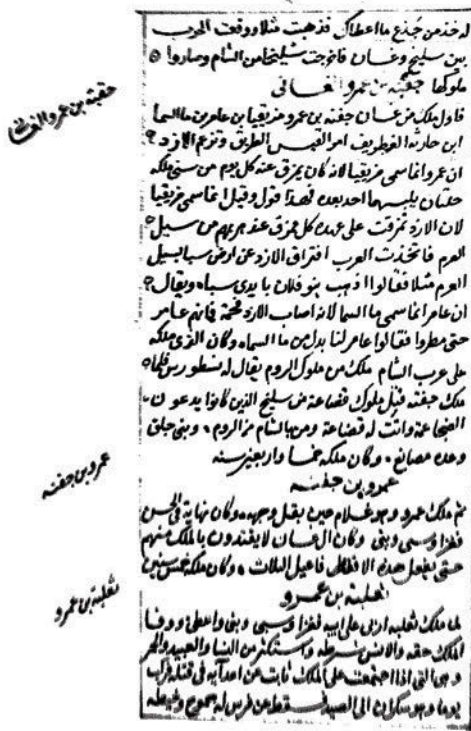 له خذ من جذع ما اعطاك فذهبت مثلا ووقعت الحرب
بين سليح وغسان فاخرجت سليحا من الشام وصاروا
ملوكها جفنة بن عمرو الغسانى
جفنة بن عمرو الغسانى
فاول ملك من غسان جفنة بن عمرو مزيقيا بن عامر بن ما السما
ابن حارثة الغطريف امر القيس البطريق وتزعم الازد
ان عمروا انما سمى مزيقيا لانه كان يمزق عنه كل يوم من سنى ملكه
حلتان يلبسهما احد بعده فهذا قول وقيل انما سمى مزيقيا
لان الازد تمزقت على عهده كل ممزق عند هربهم من سيل
العرم فاتخذت العرب افتراق الازد عن ارض سبا بسيل
العرم مثلا فقالوا اذهب بنو فلان بايدى سباء ويقال
ان عامرا انما سمى ما السما لانه اصاب الازد مخمة فانهم عامر
حتى مطروا فقالوا عامر لنا بدل من ما السماء وكان الذى ملكه
على عرب الشام ملك من ملوك الروم يقال له نسطورس فلما
ملك جفنة قتل ملوك قضاعة من سليح الذين كانوا يدعون
الضجاعمة ودانت له قضاعة ومن بالشام من الروم وبنى جلق
وعدة مصانع وكان ملكه خمسا واربعين سنه
عمرو بن جفنه
عمرو بن جفنه
ثم ملك عمرو وهو غلام حين بقل وجهه وكان نهاية فى الحسن
فغزا وسبى وبنى وكان ال غسان لا يعتدون بالملك منهم
حتى يفعل هذه الافاعيل الثلاث وكان ملكه خمس سنين
ثعلبة بن عمرو
ثعلبة بن عمرو
لما ملك ثعلبه اربى على ابيه فغزا وسبى وبنى واعطى ووفا
الملك حقه والانس شرطه واستكثر من النسا والعبيد والخمر
وهى التى اذا اجتمعت على الملك نابت عن اعدآيه فى قتله فركب
يوما وهو سكران الى الصيد فسقط عن فرس له جموح